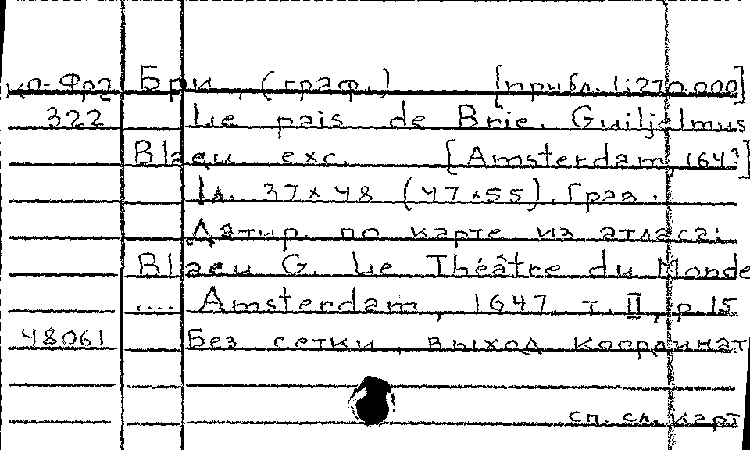 кп-Фр2 Бри, (граф.) [прибл. 1:270.000]
322 Le pais de Brie. Guiljelmus
Blaeu exc. [Amsterdam, 164
1л. 37×48 (47×55). Грав.
Датир. по карте из атласа:
Blaeu G. Le Théâtre du Monde
.... Amsterdam, 1647, т. II, p. 15
48061 Без сетки, выход координат
см. сл. карт